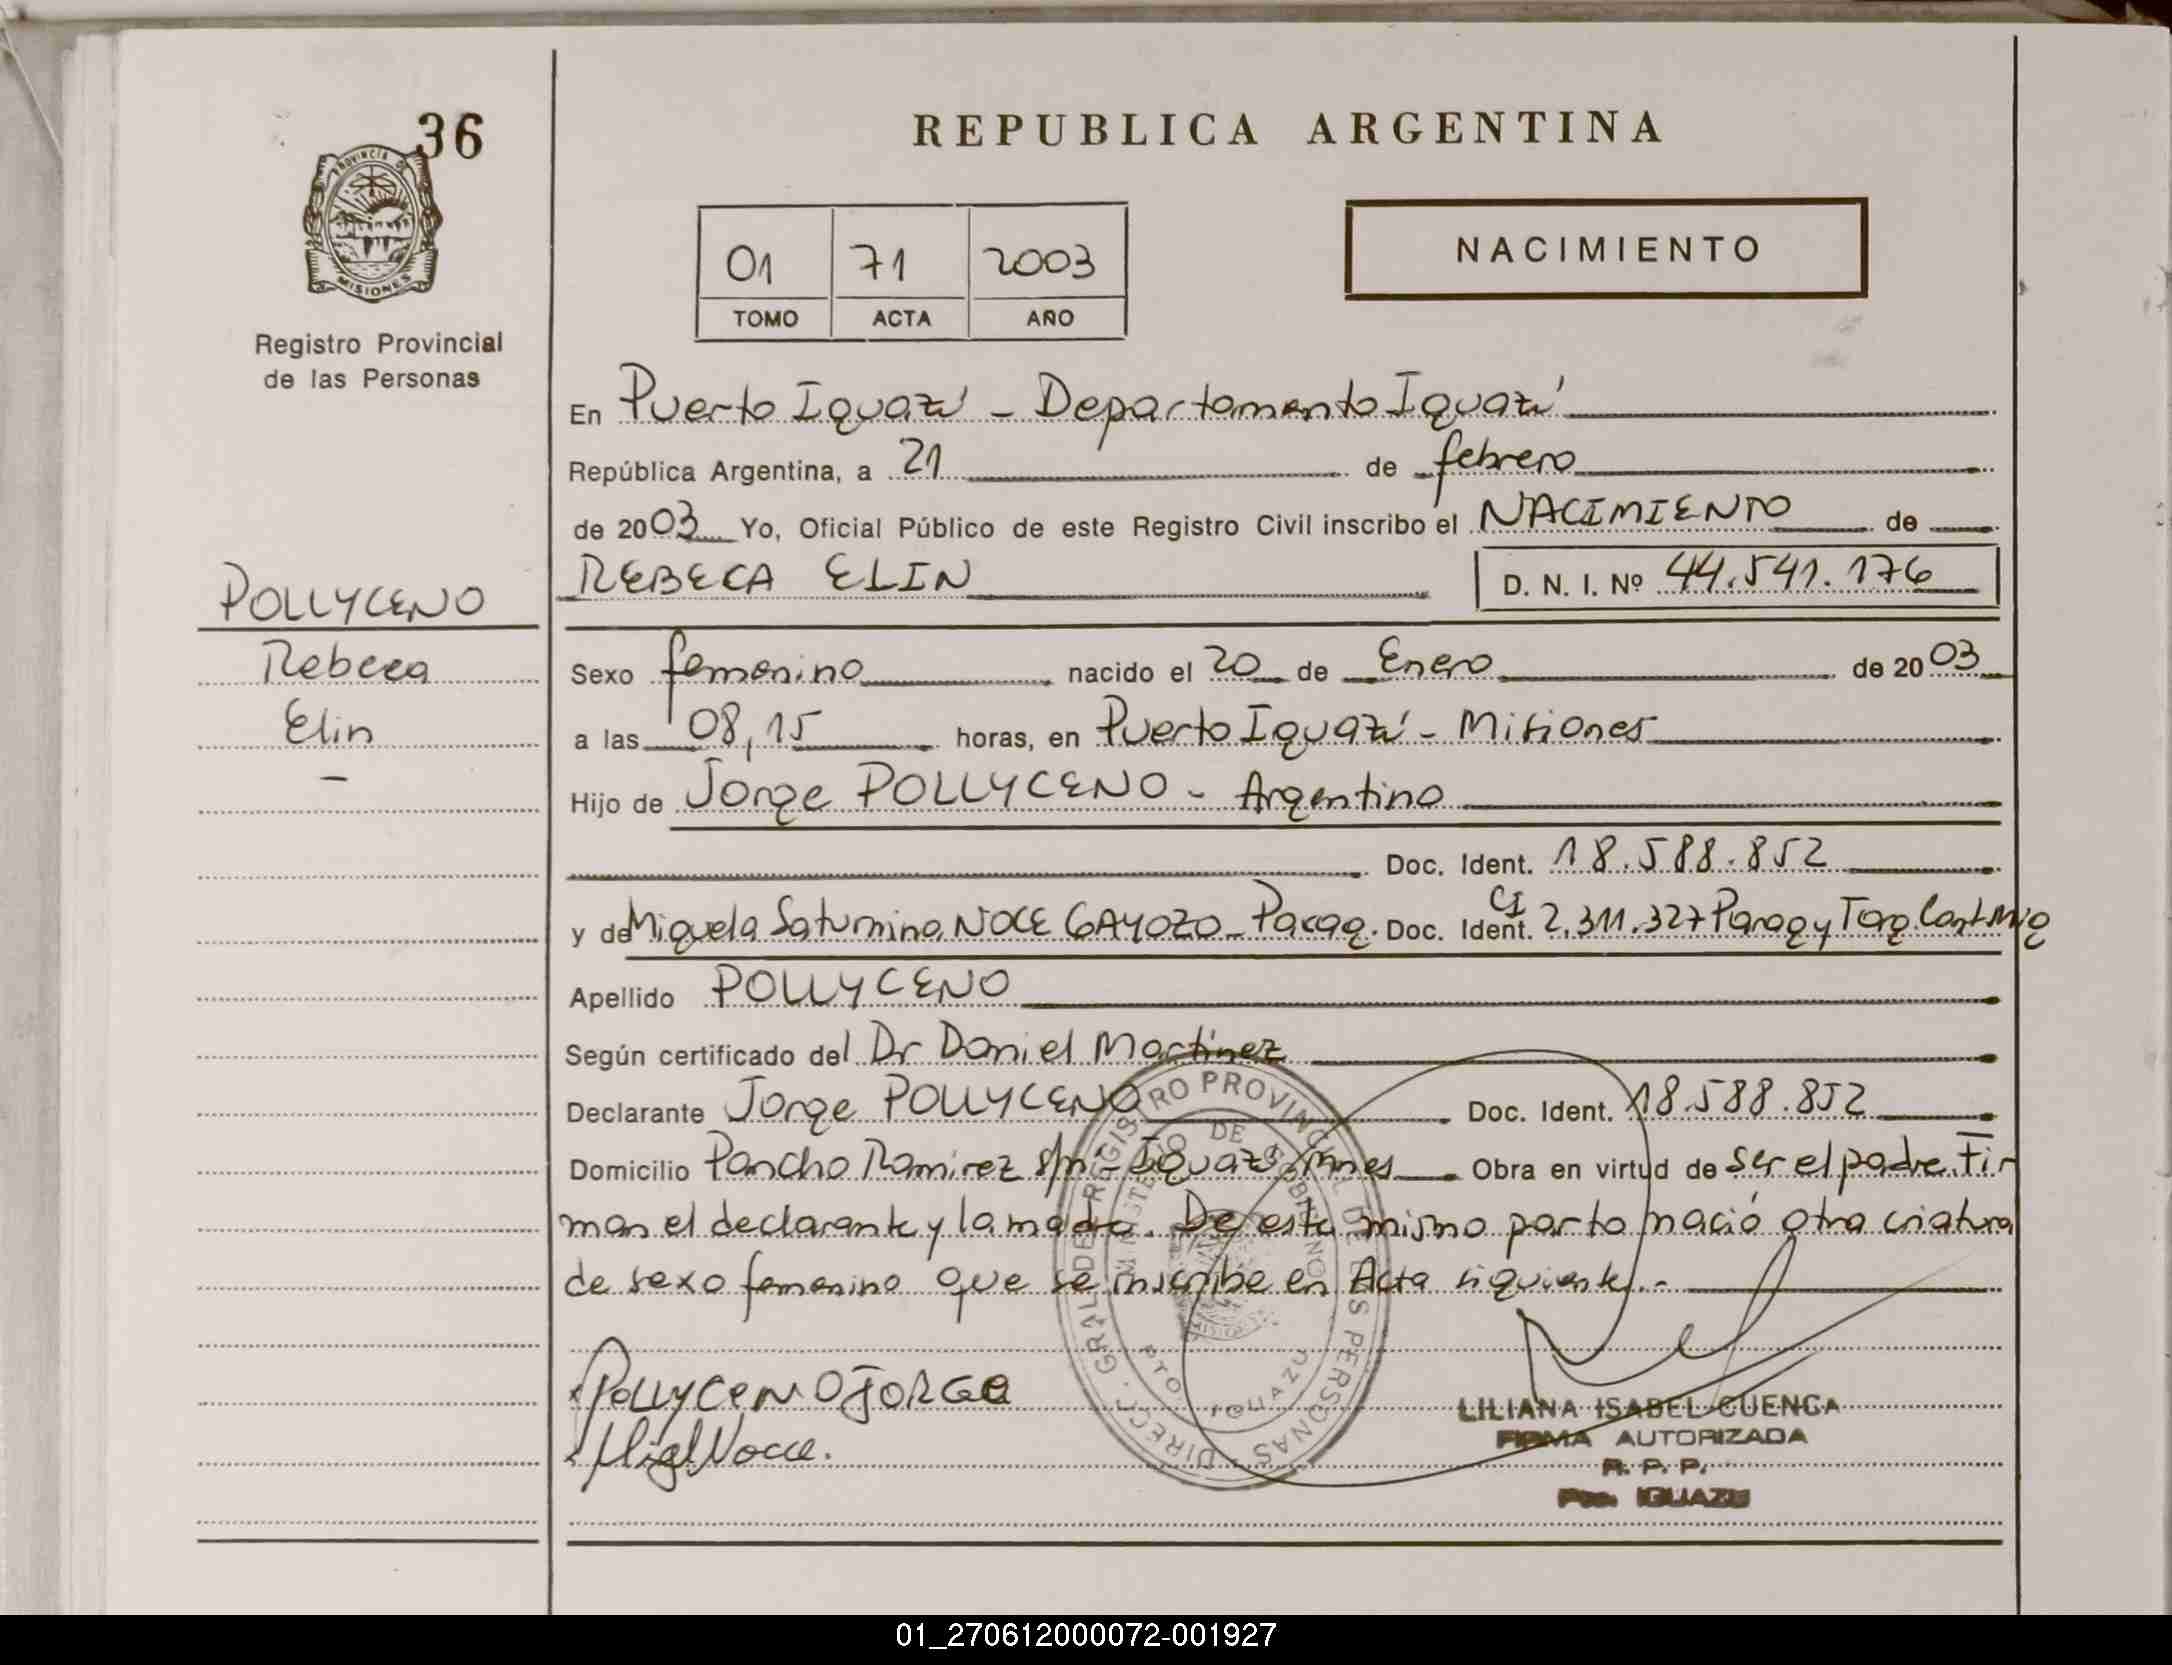 36
PROVINCIA DE
MISIONES
Registro Provincial
de las Personas
REPUBLICA ARGENTINA
01 71 2003
TOMO ACTA AÑO
NACIMIENTO
En Puerto Iguazú - Departamento Iguazú
República Argentina, a 21 de febrero
de 2003 Yo, Oficial Público de este Registro Civil inscribo el NACIMIENTO de
REBECA ELIN D. N. I. Nº 44.541.176
POLLYCENO
Rebeca
Elin
-
Sexo femenino nacido el 20 de Enero de 2003
a las 08,15 horas, en Puerto Iguazú - Misiones
Hijo de Jorge POLLYCENO - Argentino
Doc. Ident. 18.588.852
y de Miguela Saturnina NOCE GAYOZO - Parag. Doc. Ident. CI 2.311.327 Parag y Tarq.
Apellido POLLYCENO
Según certificado del Dr Daniel Martinez
Declarante Jorge POLLYCENO Doc. Ident. 18.588.852
Domicilio Pancho Ramirez s/n - Iguazú, Mnes Obra en virtud de ser el padre. Fir
man el declarante y la madre. De este mismo parto nació otra criatura
de sexo femenino que se inscribe en Acta siguiente.-
POLLYCENO JORGE
Migl Noce.
DIRECC. GRAL. DE REGISTRO PROVINCIAL DE LAS PERSONAS
MINISTERIO DE GOBIERNO
PTO IGUAZU
LILIANA ISABEL CUENCA
FIRMA AUTORIZADA
R. P. P.
Pto. IGUAZU
01_270612000072-001927